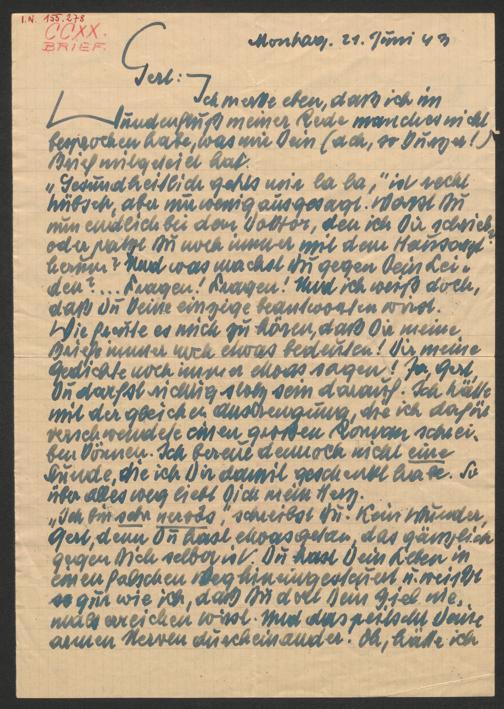 I.N. 155.278
CCXX.
BRIEF.
Montag. 21. Juni 43
Gerl:
Ich merke eben, daß ich im
Stundenfluß meiner Rede manches nicht
besprochen habe, was mir Dein (ach, so kurzer!)
Brief mitgeteilt hat.
„Gesundheitlich gehts mir la la,“ ist recht
hübsch, aber nur wenig ausgesagt. Warst Du
nun endlich bei dem Doktor, den ich Dir schrieb
oder Du noch immer mit dem Hausarzt
herum? Und was machst Du gegen Dein Lei-
den? ... Fragen! Fragen! Und ich weiß doch,
daß Du keine einzige beantworten wirst.
Wie freute es mich zu hören, daß Dir meine
Briefe immer noch etwas bedeuten! Dir meine
Gedichte noch immer etwas sagen! Ja, Gerl,
Du darfst richtig stolz sein darauf. Ich hätte
mit der gleichen Anstrengung, die ich dafür
verschwendete einen großen Roman schrei-
ben können. Ich bereue dennoch nicht eine
Stunde, die ich Dir damit geschenkt habe. So
über alles weg liebt Dich mein Herz.
„Ich bin sehr nervös“, schreibst Du! Kein Wunder,
Gerl, denn Du hast etwas getan, das gänzlich
gegen Dich selber ist. Du hast Dein Leben in
einen falschen Weg hineingesteuert u. weißt
so gut wie ich, daß Du dort Dein Ziel nie-
mals erreichen wirst. Und das peitscht Deine
armen Nerven durcheinander! Oh, hätte ich